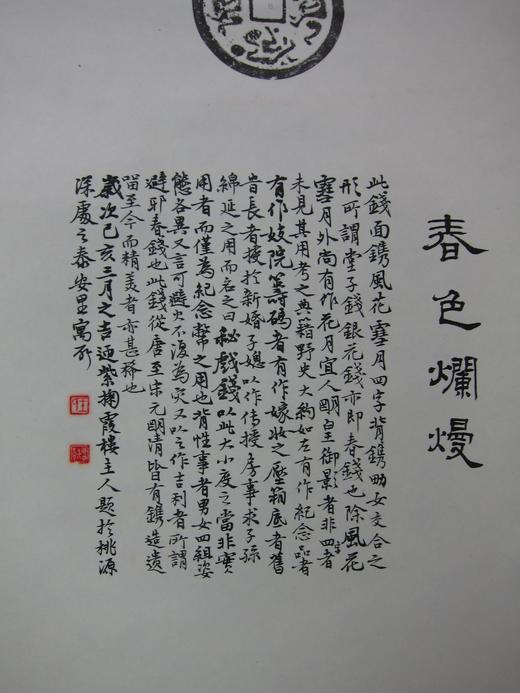 春色爛熳
此錢面鐫風花雪月四字背鐫男女交合之
形所謂堂子錢銀花錢亦即春錢也除風花
雪月外尚有作花月宜人明皇御影者非四字者
未見其用考之典籍野史大約如左有作紀念品者
有作妓院籌碼者有作嫁妝之壓箱底者舊
昔長者授於新婚子媳以作傳授房事求子孫
綿延之用而名之曰秘戲錢以此大小度之當非實
用者而僅為紀念幣之用也背性事者男女四組姿
態各異又言可避火不復為災又以之作吉利者所謂
避邪春錢也此錢從唐至宋元明清皆有鐫造遺
留至今而精美者亦甚稀也
歲次己亥三月之吉迎紫掬霞樓主人題於桃源
深處之泰安里寓所